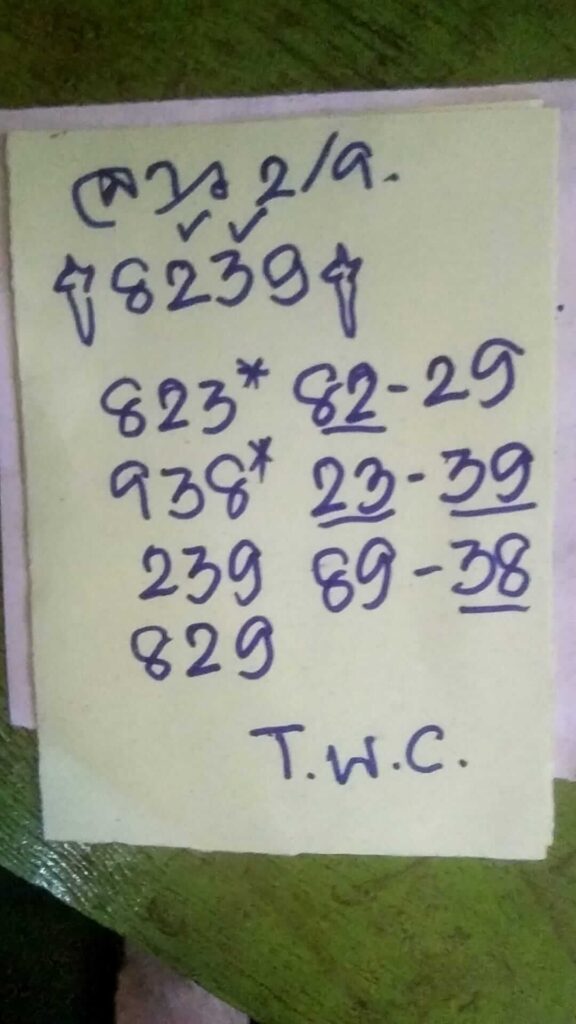 ลาว 2/9.
✓ ✓
8239
823* 82-29
938* 23-39
239 89-38
829
T.W.C.